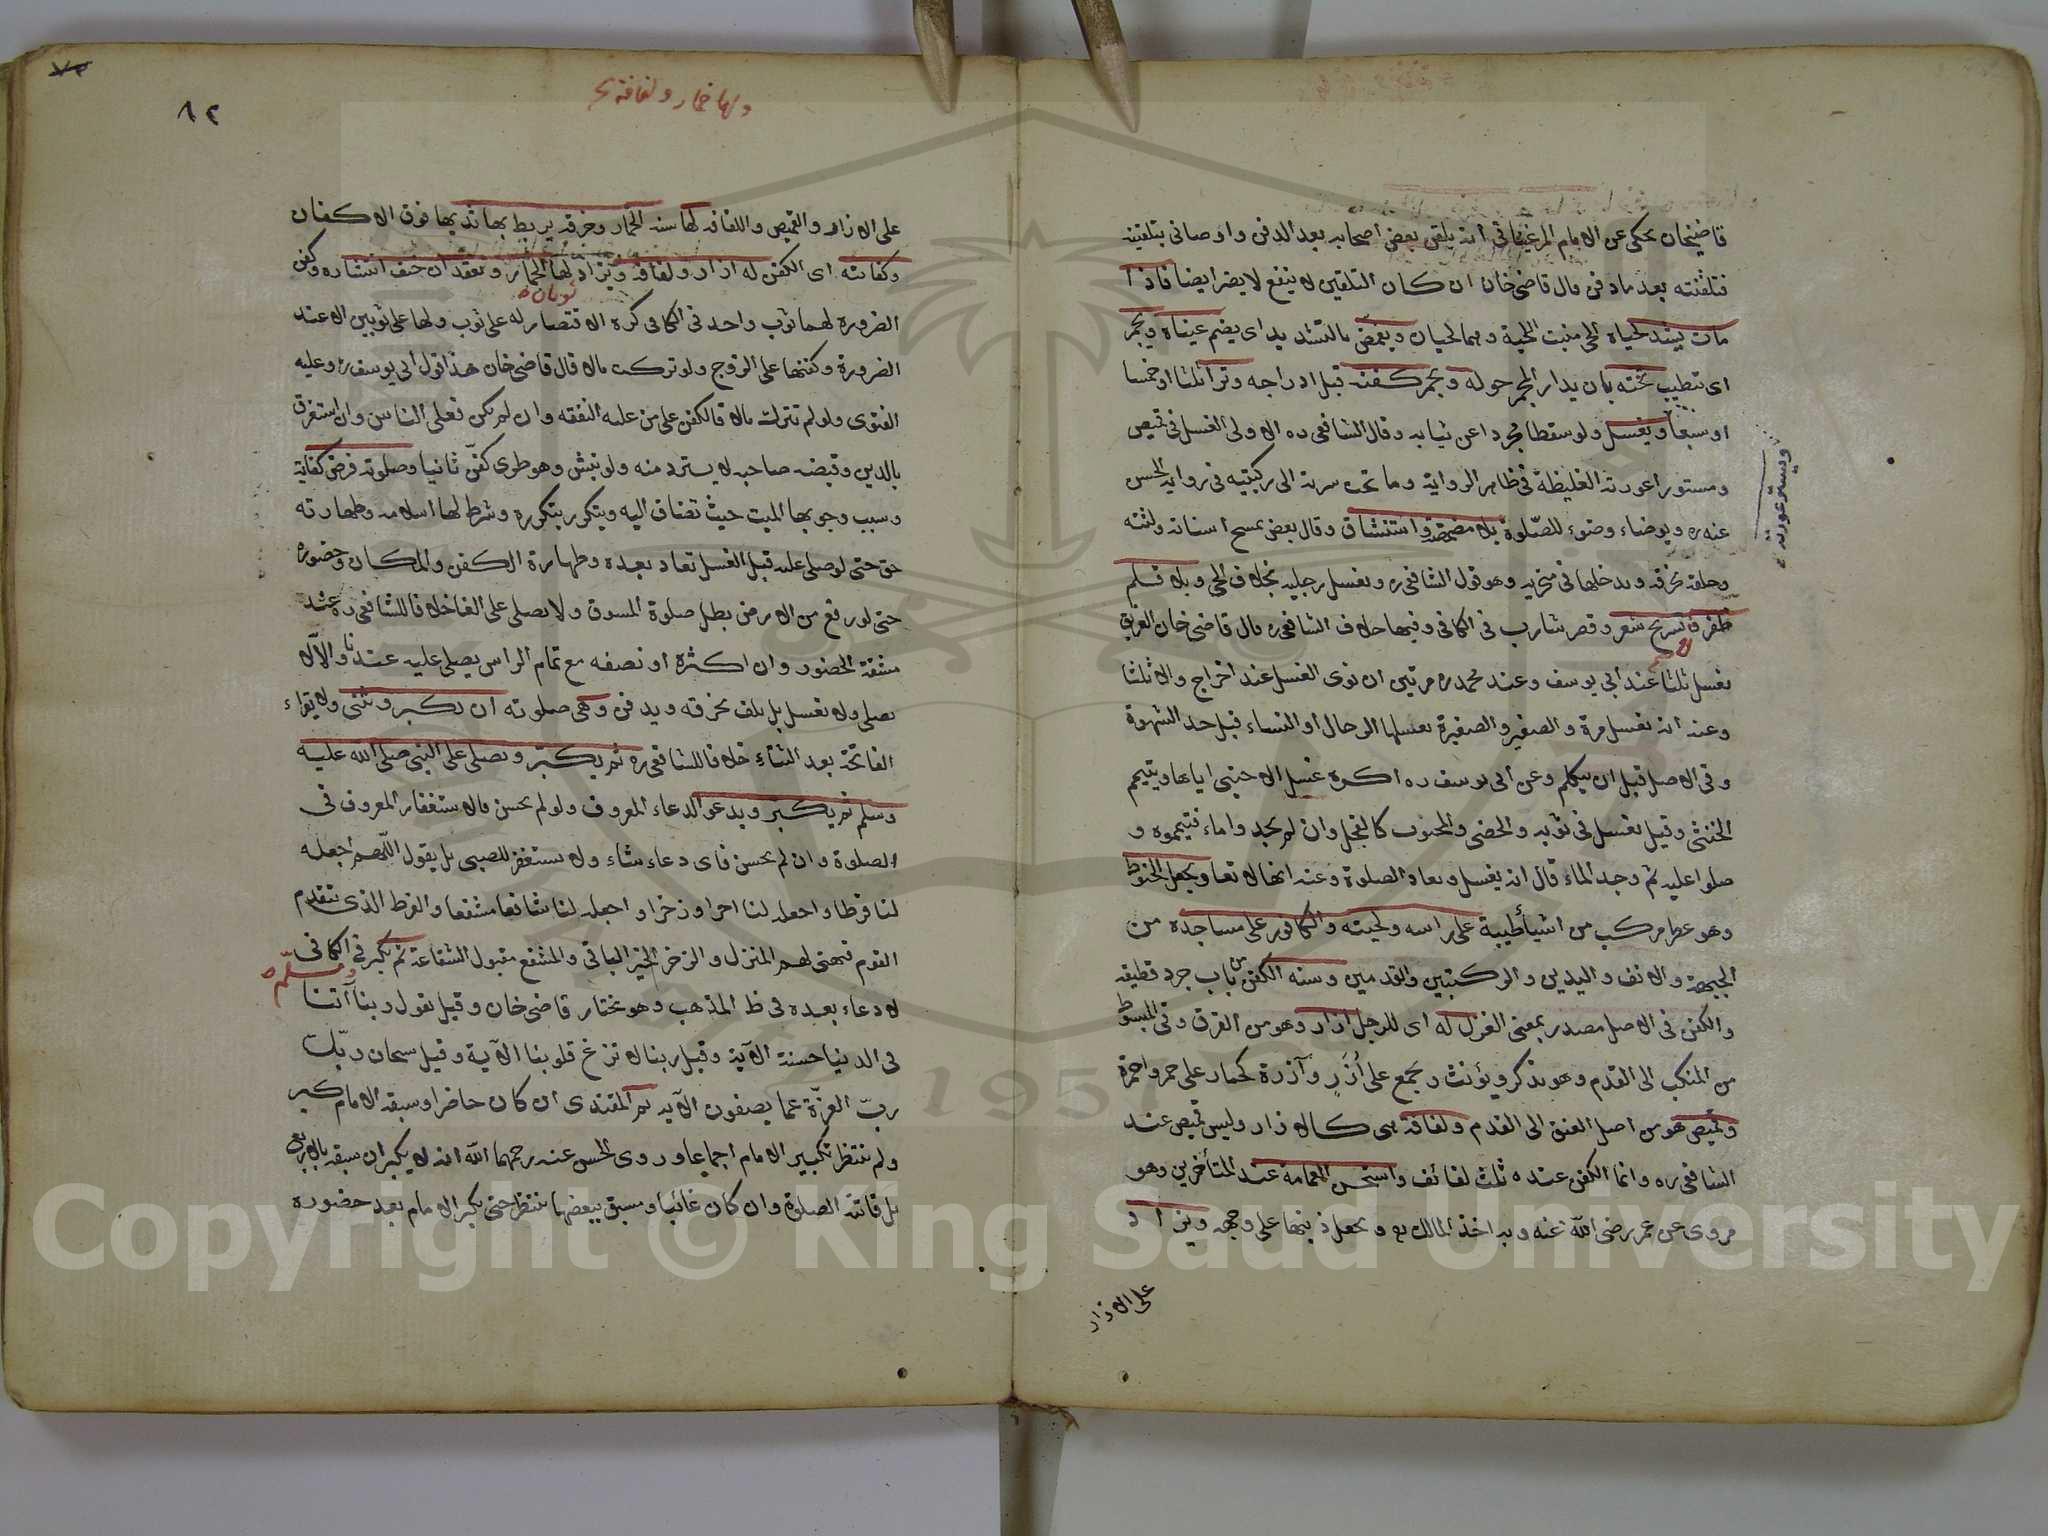 قاضيخان يحكى عن الامام المرغيناني انه يلقن بعض اصحابه بعد الدفن واوصاني بتلقينه
فتلقنته بعد ما دفن قال قاضى خان ان كان التلقين لا ينفع لا يضر ايضا فاذا
مات يشد لحياه اللحى منبت اللحية وهما لحيان ويغمض بالتشديد اى يضم عيناه ويجمر
اى تطيب تخته بان يدار المجمر حوله ويجمر كفنه قبل ادراجه وترا ثلثا او خمسا
او سبعا ويغسل ولو سقطا مجردا عن ثيابه وقال الشافعى ره الاولى الغسل فى قميص
ومستورا عورته الغليظة فى ظاهر الرواية وما تحت سرته الى ركبتيه فى رواية الحسن
ويستر عورته
عنه ره ويوضاء وضوء للصلوة بلا مضمضة واستنشاق وقال بعض يمسح اسنانه ولثته
وحلقه بخرقة ويدخلها فى منخريه وهو قول الشافعى ره ويغسل رجليه بخلاف الحى وبلا قلم
ظفر وتسريح شعر وقص شارب فى الكافى وفيها خلاف الشافعى ره قال قاضى خان الغريق
يغسل ثلثا عند ابى يوسف وعند محمد ره مرتين ان نوى الغسل عند اخراج والا ثلثا
وعنه انه يغسل مرة والصغير والصغيرة يغسلها الرجال او النساء قبل حد الشهوة
وفى الاصل قبل ان يتكلم وعن ابى يوسف ره اكره غسل الاجنبى اياها وييمم
الخنثى وقيل يغسل فى ثوبه والخصى والمجبوب كالفحل وان لم يجدوا ماء فتيمموه و
صلوا عليه ثم وجد الماء قال انه يغسل ويعاد الصلوة وعنه انها لا تعاد ويجعل الحنوط
وهو عطر مركب من اشياء طيبة على راسه ولحيته والكافور على مساجده من
الجبهة والانف واليدين والركبتين والقدمين وسنه الكفن من باب جرد قطيفه
والكفن فى الاصل مصدر بمعنى الغزل له اى للرجل ازار وهو من القرن وفى المبسوط
من المنكب الى القدم وهو يذكر ويؤنث ويجمع على أُزُرٍ وآزرة كحمار على حمر واحمرة
وقميص هو من اصل العنق الى القدم ولفافة هى كالازار وليس قميص عند
الشافعى ره وانما الكفن عنده ثلث لفائف واستحسن العمامة عند المتأخرين وهو
مروى عن عمر رضى الله عنه وبه اخذ المالك ويجعل ذنبها على وجهه ويزاد
على الازار
٨٢
ولها خمار ولفافة
على الازار والقميص واللفافة لها سنة الخمار وخرقة يربط بها ثديها فوق الاكفان
وكفايته اى الكفن له ازار ولفافة ويزاد لها الخمار ويعقد ان خيف انتشاره وكفن
ثوبان
الضرورة لهما ثوب واحد فى الكافى كره الاقتصار له على ثوب ولها على ثوبين الا عند
الضرورة وكفنها على الزوج ولو تركت مالا قال قاضى خان هذا قول ابى يوسف ره وعليه
الفتوى ولو لم تترك مالا فالكفن على من عليه النفقه وان لم يكن فعلى الناس وان استغرق
بالدين وقبضه صاحبه لا يسترد منه ولو نبش وهو طرى كفن ثانيا وصلوته فرض كفاية
وسبب وجوبها الميت حيث تضاف اليه ويتكرر بتكرره وشرط لها اسلامه وطهارته
حتى لو صلى عليه قبل الغسل تعاد بعده وطهارة الكفن والمكان وحضوره
حتى لو رفع من الارض بطل صلوة المسبوق ولا يصلى على الغائب خلافا للشافعى ره عند
مشقة الحضور وان اكثره او نصفه مع تمام الراس يصلى عليه عندنا والا لا
يصلى ولا يغسل بل يلف بخرقه ويدفن وهى صلوته ان يكبر ويثنى ولا يقراء
الفاتحة بعد الثناء خلافا للشافعى ره ثم يكبر ويصلى على النبى صلى الله عليه
وسلم ثم يكبر ويدعو الدعاء المعروف ولو لم يحسن فالاستغفار المعروف فى
الصلوة وان لم يحسن فاى دعاء شاء ولا يستغفر للصبى بل يقول اللهم اجعله
لنا فرطا واجعله لنا اجرا وذخرا واجعله لنا شافعا مشفعا والفرط الذى يتقدم
القوم فيهئ لهم المنزل والذخر الخير الباقى والمشفع مقبول الشفاعة ثم يكبر فى الكافى
ويسلم
لا دعاء بعده فى ظ المذهب وهو مختار قاضى خان وقيل يقول ربنا آتنا
فى الدنيا حسنة الآية وقيل ربنا لا تزغ قلوبنا الآية وقيل سبحان ربك
رب العزة عما يصفون الآية ثم المقتدى ان كان حاضرا وسبقه الامام كبر
ولم ينتظر تكبير الامام اجماعا وروى الحسن عنه رحمهما الله انه لا يكبر ان سبقه بالاربع
بل فاتته الصلوة وان كان غائبا وسبق ببعضها ينتظر حتى يكبر الامام بعد حضوره
1957
Copyright © King Saud University